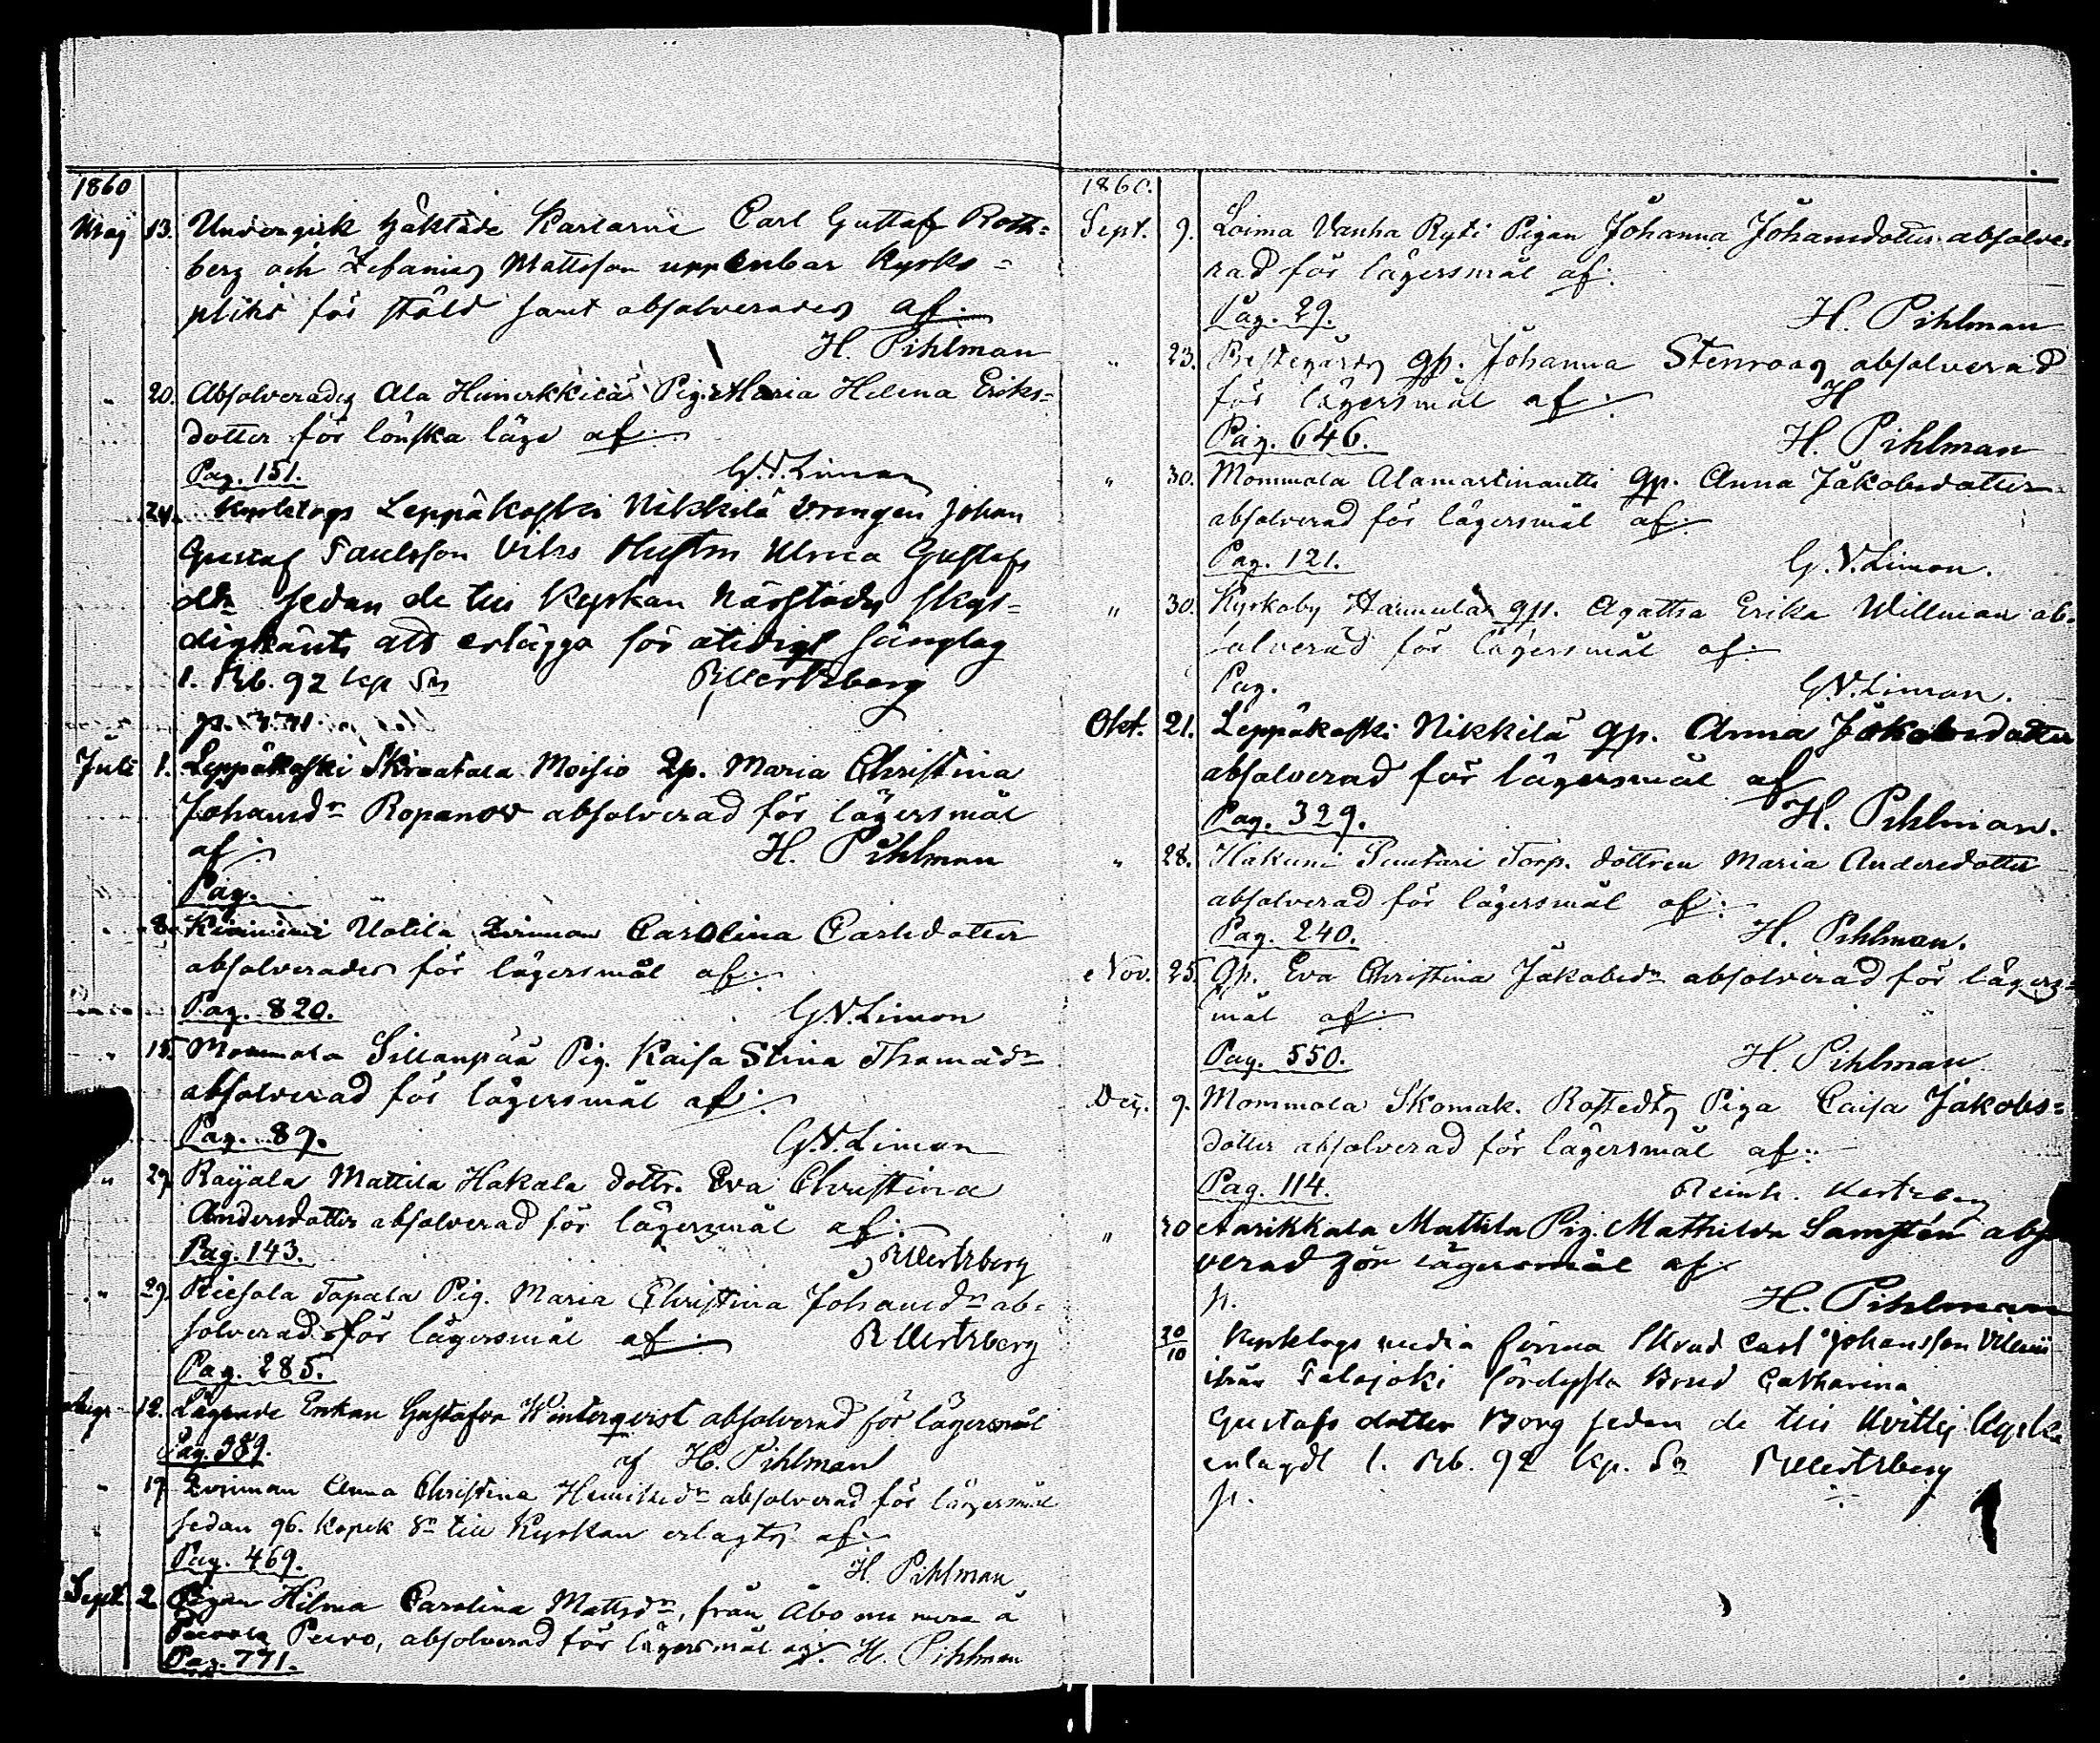 1860
Maj 13. Undergick häktade Karlarne Carl Gustaf Roth-
berg och Zefanias Mattsson uppenbar Kyrko-
plikt för stöld samt absolverades af:
H. Pihlman
" 20. Absolverades Ala Heinerkkilä Pig. Maria Helena Eriks-
dotter för lönska läge af:
Pag. 151. G.V. Limon
24. Kyrktogs Leppäkoski Nikkilä Drengen Johan
Gustaf Paulsson Vilks Hustru Ulrica Gustafs
dr sedan de till Kyrkan
att erlägga för otidigt sänglag
1. Rb. 92 kp Sr R Wertzberg
p.
Juli 1. Leppäkoski Skraatala Moisio Qp. Maria Christina
Johansdr Ropanov absolverad för lägersmål
af: H. Pihlman
Pag.
8. Uotila Qvinnan Carolina Carlsdotter
absolverades för lägersmål af:
Pag. 820. G.V. Limon
" 15. Mommola Sillanpää Pig. Kaisa Stina Thomasdr
absolverad för lägersmål af:
Pag. 89. G.V. Limon
" 29. Rayala Mattila Hakala dottr. Eva Christina
Andersdotter absolverad för lägersmål af:
Pag. 143. R Wertzberg
" 29. Tapala Pig. Maria Christina Johansdr ab-
solverad för lägersmål af: R Wertzberg
Pag. 285.
Aug. 12. Enkan Gustafva Winterqvist absolverad för lägersmål
Pag. 389. af H. Pihlman
" 19. Qvinnan Anna Christina Henriksdr absolverad för lägersmål
sedan 96. Kopek Sr till Kyrkan erlagts af:
Pag. 469. H. Pihlman
Sept. 2. Pigan Hilma Carolina Mattsdr, från Åbo nu mera å
absolverad för lägersmål af: H. Pihlman
Pag. 771.
1860.
Sept. 9. Loima Vanha Ryti Pigan Johanna Johansdotter absolve-
rad för lägersmål af:
Pag. 29. H. Pihlman
" 23. Prestegårds gp. Johanna Stenroos absolverad
för lägersmål af: H
Pag. 646. H. Pihlman
" 30. Mommola Alamartinantti gp. Anna Jakobsdotter
absolverad för lägersmål af:
Pag. 121. G.V. Limon.
" 30. Kyrkoby Hannula gp. Agatha Erika Willman ab-
solverad för lägersmål af:
Pag. G.V. Limon.
Okt. 21. Leppäkoski Nikkilä gp. Anna Jakobsdotter
absolverad för lägersmål af
Pag. 329. H. Pihlman.
" 28. Torp. dottren Maria Andersdotter
absolverad för lägersmål af:
Pag. 240. H. Pihlman.
Nov. 25. Qp. Eva Christina Jakobsdr absolverad för lägers-
mål af:
Pag. 550. H. Pihlman
Dec. 9. Mommola Skomak. Piga Caisa Jakobs-
dotter absolverad för lägersmål af:
Pag. 114. Reinh. Wertzberg
" 30 Aarikkala Mattila Pig. Mathilda Samstén absol
verad för lägersmål af
p. H. Pihlman
20/10 Kyrktogs Carl Johansson
ifrån Palojoki Brud Catharina
Gustafs dotter Borg sedan de till Kyrka
erlagdt 1. Rb. 92 kp. Sr R Wertzberg
p.